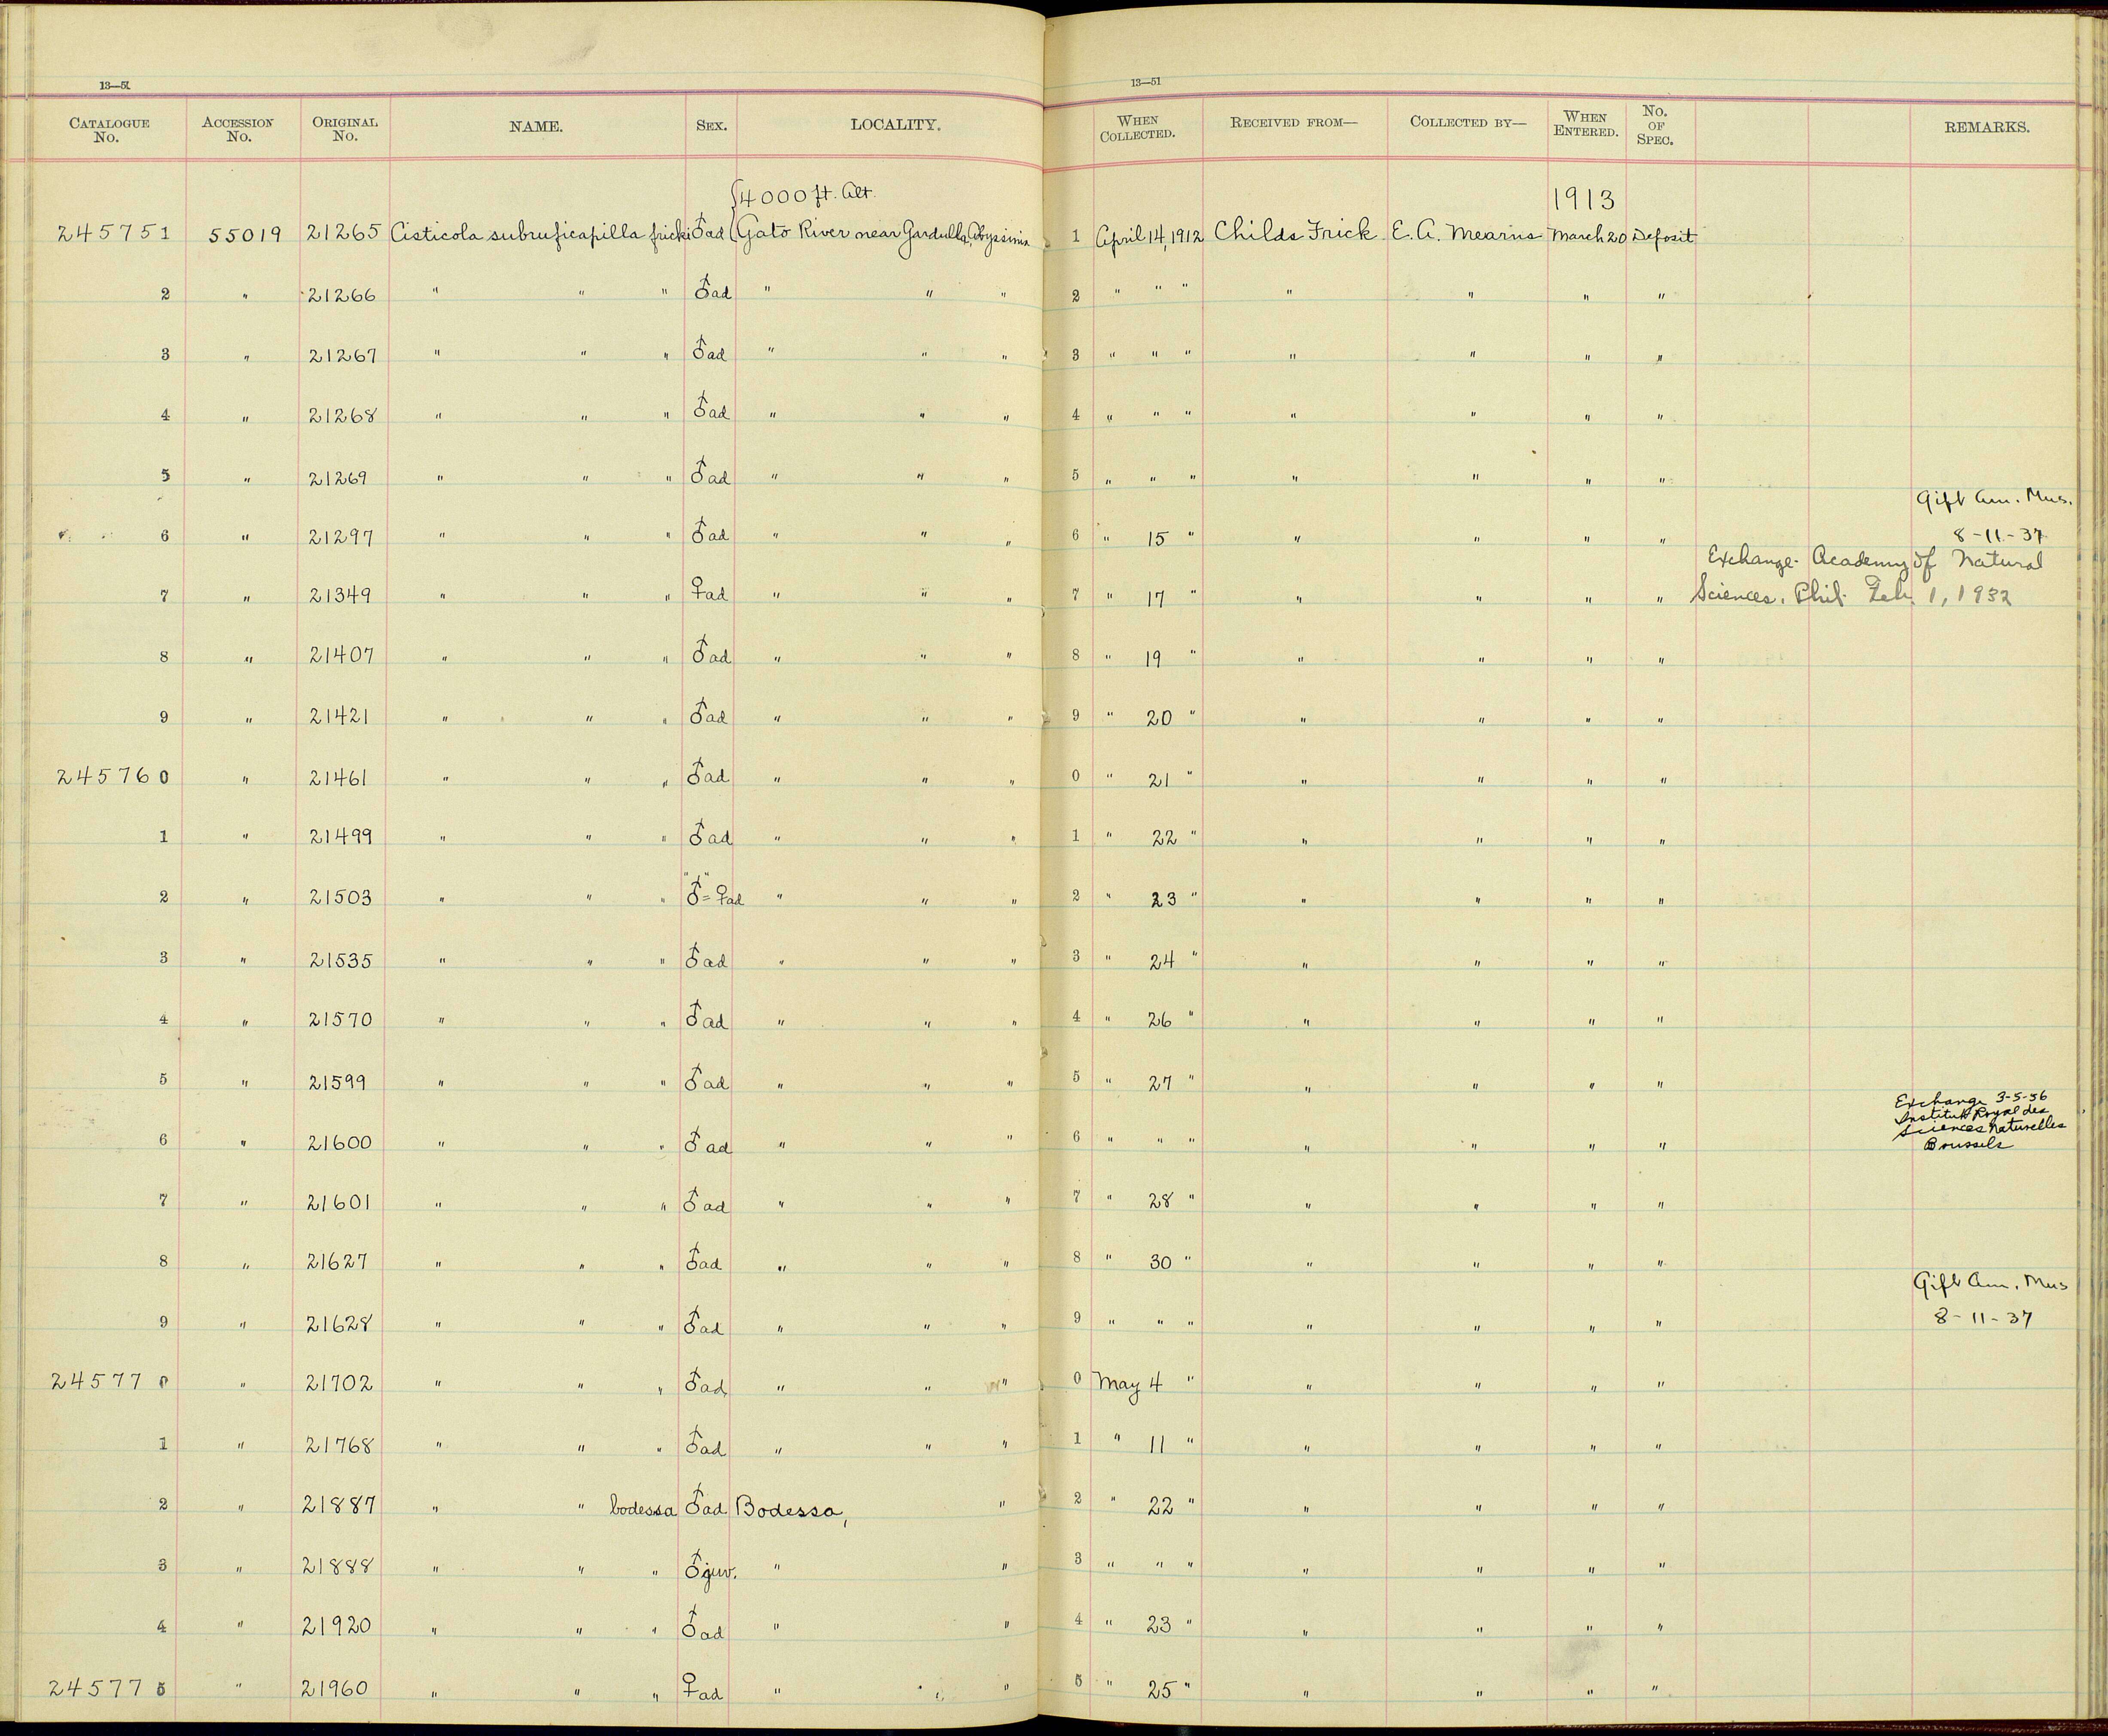 13—51 13—51
CATALOGUE No. ACCESSION No. ORIGINAL No. NAME. SEX. LOCALITY. WHEN COLLECTED. RECEIVED FROM— COLLECTED BY— WHEN ENTERED. No. OF SPEC. REMARKS.
{4000 ft. Alt. 1913
245751 55019 21265 Cisticola subruficapilla fricki ♂ad Gato River near Gardulla, Abyssinia 1 April 14, 1912 Childs Frick E. A. Mearns March 20 Deposit
2 " 21266 " " " ♂ad " " " 2 " " " " " " "
3 " 21267 " " " ♂ad " " " 3 " " " " " " "
4 " 21268 " " " ♂ad " " " 4 " " " " " " "
5 " 21269 " " " ♂ad " " " 5 " " " " " " "
Gift Am. Mus.
6 " 21297 " " " ♂ad " " " 6 " 15 " " " " " 8-11-37
Exchange- Academy of Natural
7 " 21349 " " " ♀ad " " " 7 " 17 " " " " " Sciences, Phil. Feb. 1, 1932
8 " 21407 " " " ♂ad " " " 8 " 19 " " " " "
9 " 21421 " " " ♂ad " " " 9 " 20 " " " " "
245760 " 21461 " " " ♂ad " " " 0 " 21 " " " " "
1 " 21499 " " " ♂ad " " " 1 " 22 " " " " "
2 " 21503 " " " "♂"=♀ad " " " 2 " 23 " " " " "
3 " 21535 " " " ♂ad " " " 3 " 24 " " " " "
4 " 21570 " " " ♂ad " " " 4 " 26 " " " " "
5 " 21599 " " " ♂ad " " " 5 " 27 " " " " "
Exchange 3-5-56
Institut Royal des
Sciences Naturelles
6 " 21600 " " " ♂ad " " " 6 " " " " " " " Brussels
7 " 21601 " " " ♂ad " " " 7 " 28 " " " " "
8 " 21627 " " " ♂ad " " " 8 " 30 " " " " "
Gift Am. Mus
9 " 21628 " " " ♂ad " " " 9 " " " " " " " 8-11-37
245770 " 21702 " " " ♂ad " " " 0 May 4 " " " " "
1 " 21768 " " " ♂ad " " " 1 " 11 " " " " "
2 " 21887 " " bodessa ♂ad Bodessa, " 2 " 22 " " " " "
3 " 21888 " " " ♂juv. " " 3 " " " " " " "
4 " 21920 " " " ♂ad " " 4 " 23 " " " " "
245775 " 21960 " " " ♀ad " " " 5 " 25 " " " " "